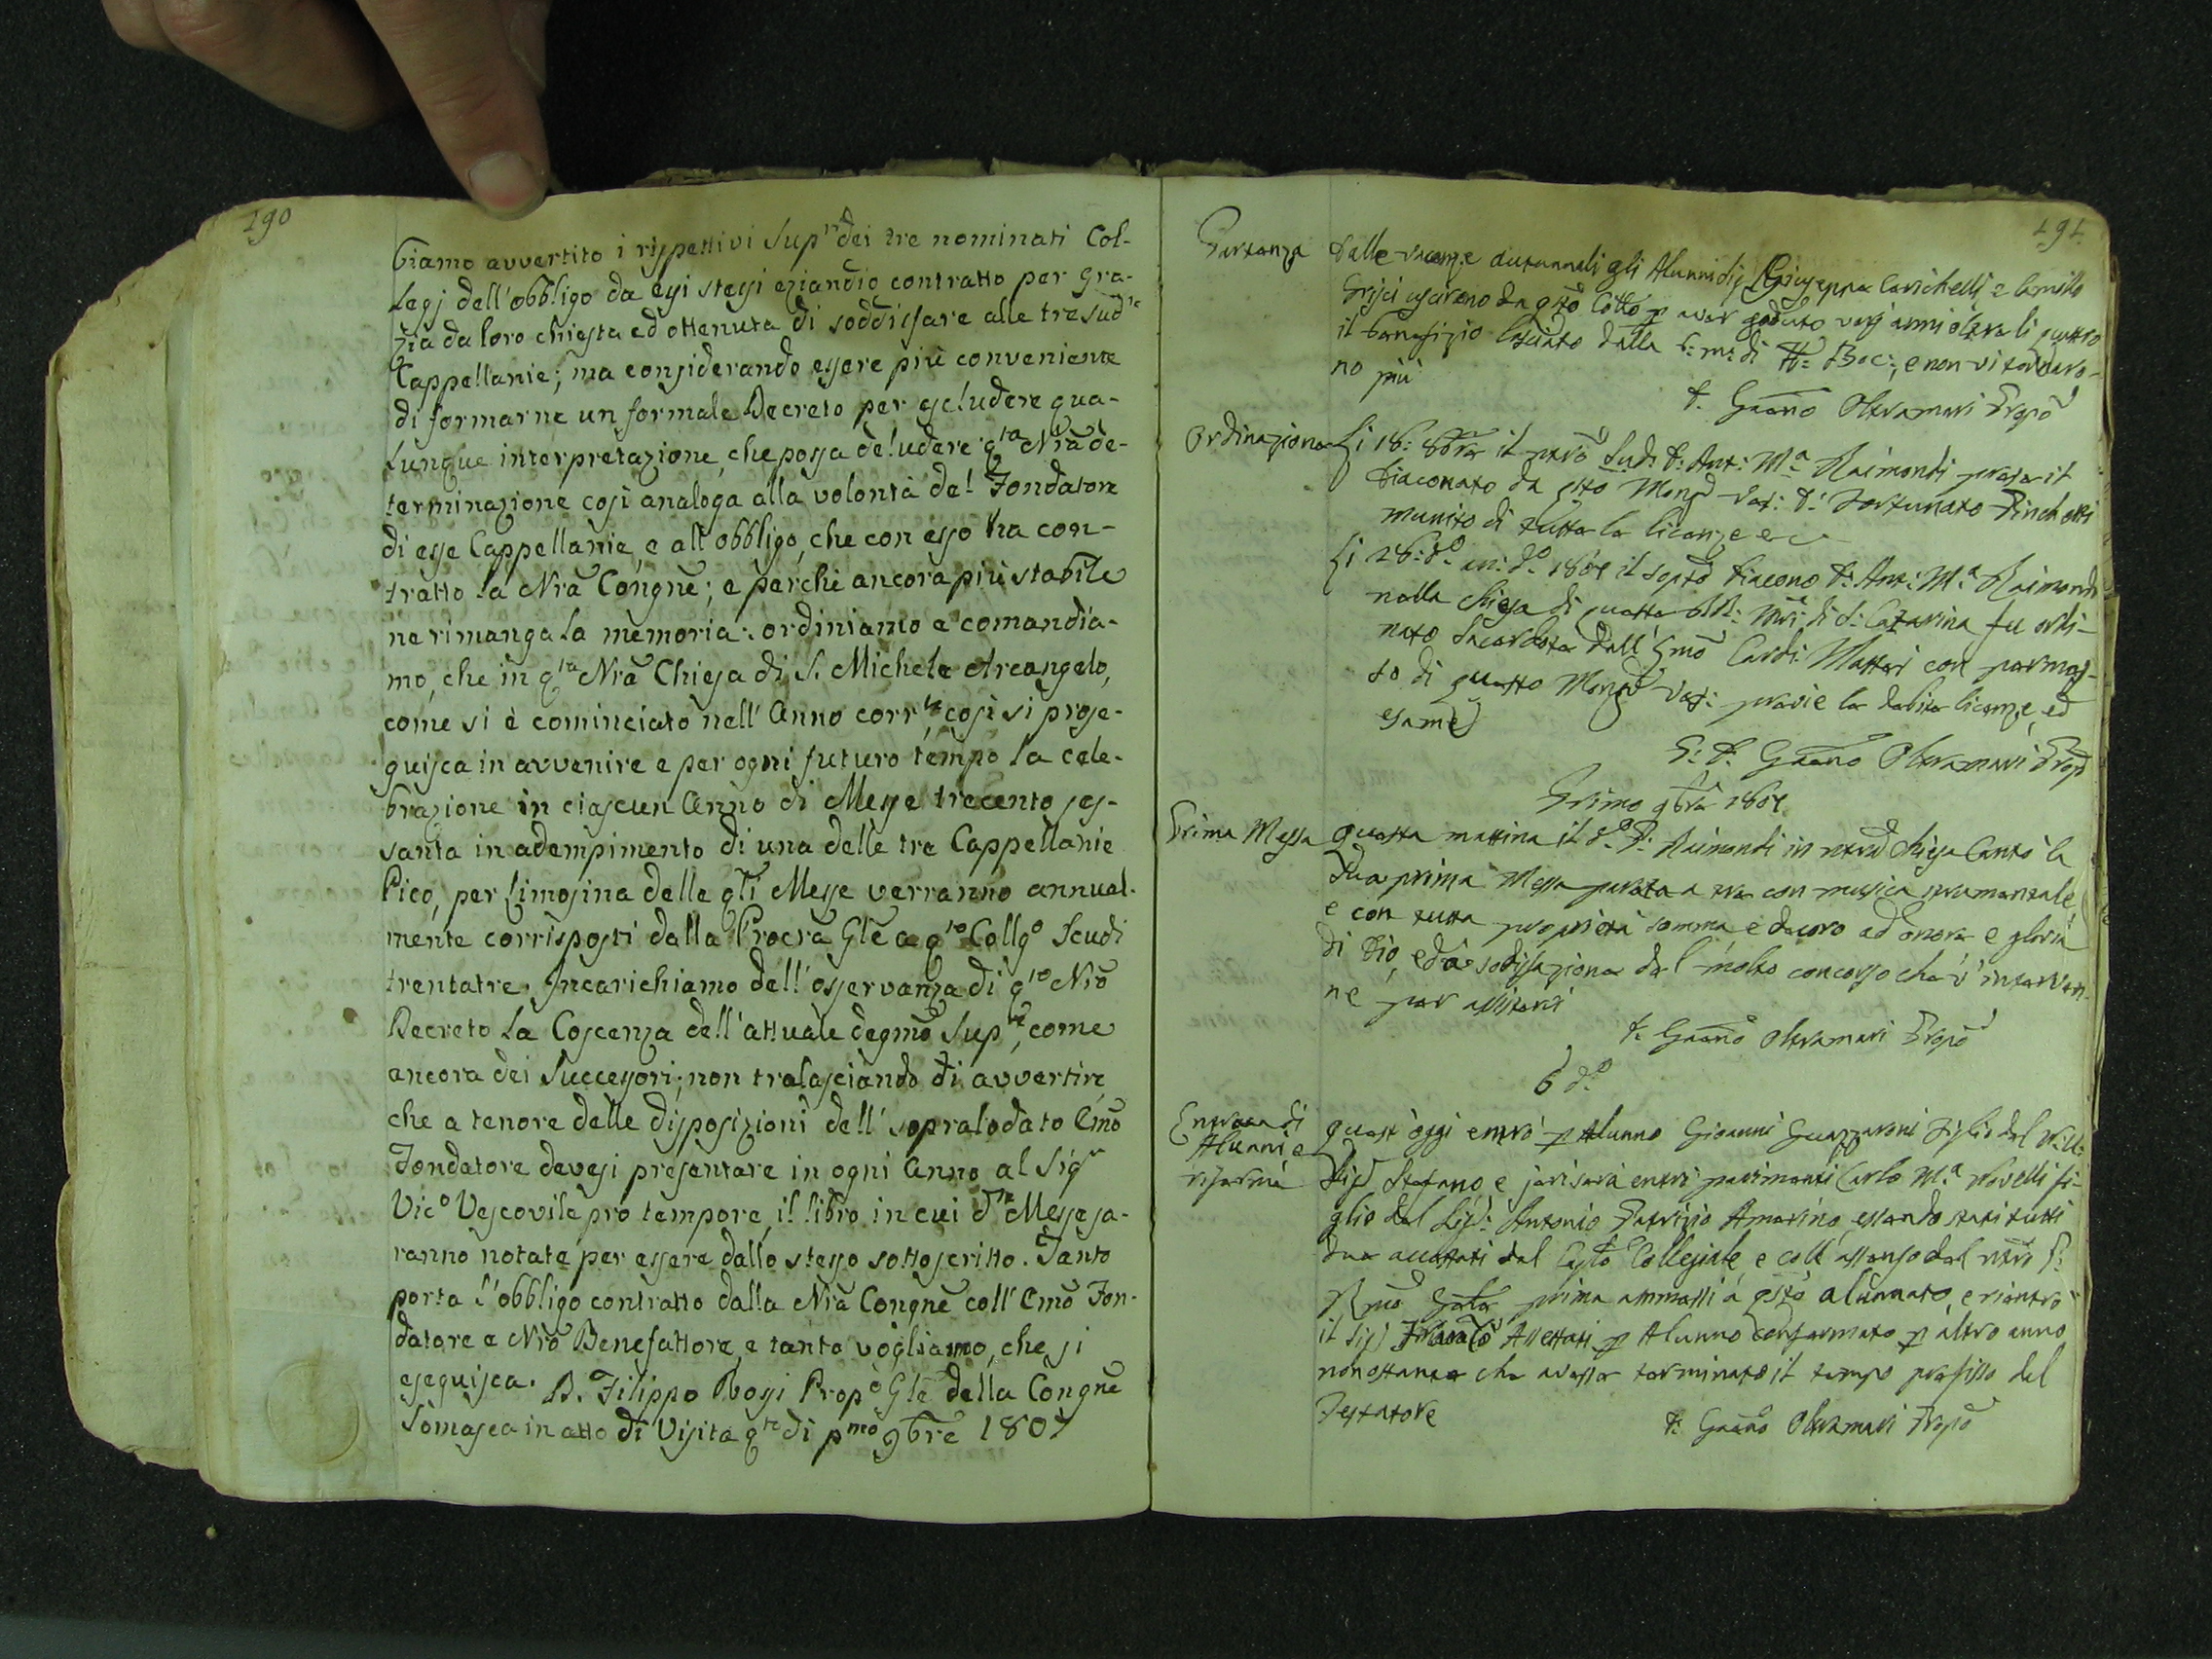 190
biamo avvertito i rispettivi Sup.ri dei tre nominati Col-
legj dell'obbligo da essi stessi eziandio contratto per gra-
zia da loro chiesta ed ottenuta di soddisfare alle tre sud.te
Cappellanie; ma considerando essere più conveniente
di formarne un formale Decreto per escludere qua-
lunque interpretazione, che possa deludere q.ta Nrã de-
terminazione così analoga alla volontà del Fondatore
di esse Cappellanie, e all'obbligo, che con esso ha con-
tratto la Nrã Congnẽ; e perchè ancora più stabile
ne rimanga la memoria: ordiniamo e comandia-
mo, che in q.ta Nrã Chiesa di S. Michele Arcangelo,
come si è cominciato nell'Anno corr.te, così si prose-
guisca in avvenire e per ogni futuro tempo la cele-
brazione in ciascun Anno di Messe trecento ses-
santa in adempimento di una delle tre Cappellanie
Pico, per limosina delle qli Messe verranno annual-
mente corrisposti dalla Procrã Glẽ a q.to Collg.o Scudi
trentatre. Incarichiamo dell'osservanza di q.to Nrõ
Decreto la Coscenza dell'attuale degmõ Sup.re, come
ancora dei Successori; non tralasciando di avvertire
che a tenore delle disposizioni dell'sopralodato Emõ
Fondatore devesi presentare in ogni Anno al Sig.r
Vic.o Vescovile pro tempore, il libro in cui d.te Messe sa-
ranno notate per essere dallo stesso sottoscritto. Tanto
porta l'obbligo contratto dalla Nrã Congnẽ coll'Emõ Fon-
datore e Nrõ Benefattore, e tanto vogliamo, che si
eseguisca. D. Filippo Rossi Prop.o Glẽ della Congnẽ
Somasca in atto di Visita q.to di p.mo 9bre 1807
191
Partenza
Dalle vacanze autunnali gli Alunni Sigg. Giuseppe Carichelli, e Camillo
Grisci uscirono da qsto Collo p aver goduto varj anni oltre li quattro
il benefizio lasciato dalla ... di ... e non vi tornaro-
no più
D. Gaetno Oltremari Prepo
Ordinazione
Li 18: 8bre il nrõ Sud: D: Ant: M.a Raimondi prese il
Diaconato da qsto Monsr Ves: D: Fortunato Pinchetti
munito di tutte le licenze ec
Li 28: d.o an: d.o 1807 il sopdo Diacono D: Ant: M.a Raimondi
nella chiesa di queste RR: Mri di S: Catarina fu ordi-
nato Sacerdote dall'Emo Card: Mattei con permes-
so di questo Monsr Ves: previe le debite licenze, ed
esame
D. Gaetno Oltremari Prepo
Primo 9bre 1807
Prima Messa
Questa mattina il d.o D: Raimondi in nra chiesa cantò la
sua prima Messa parata a tre con musica strumentale,
e con tutta proprietà somma e decoro ad onore e gloria
di Dio, ed a sodisfazione del molto concorso che v'interven-
ne per assistervi
D. Gaetno Oltremari Prepo
6 d.o
Entrata di
Alunni e
riferma
Quest'oggi entrò p Alunno Giovanni Guazzaroni Figlio del ...
Sigr Stefano e jerisera entrò parimenti Carlo M.a Novelli fi-
glio del Sigr: Antonio Patrizio Amerino, essendo stati tutti
due accettati dal Caplo Collegiale, e coll'assenso del nro P:
Rmo Gnle prima ammessi a qsto alunnato, e rientrò
il Sigr ... Assettati p Alunno confermato p altro anno
nonostante che avesse terminato il tempo prefisso del
Testatore
D. Gaetno Oltremari Prepo